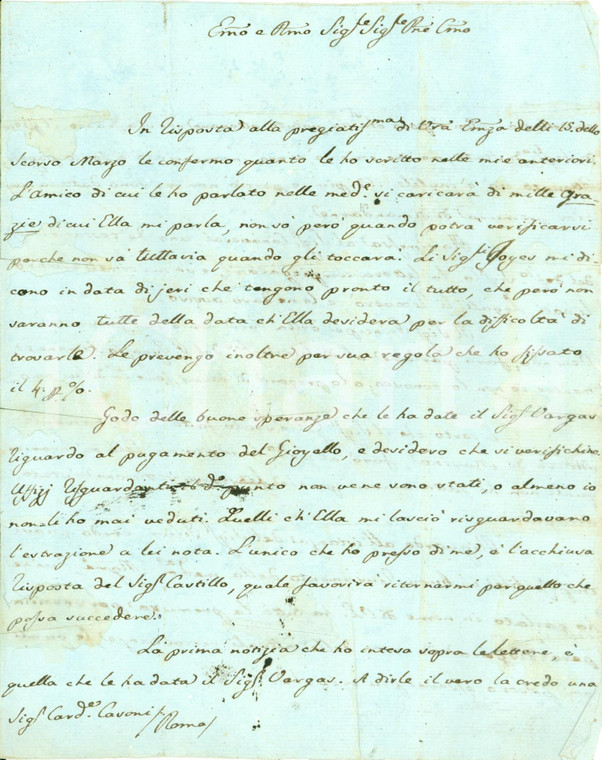 Emo e Rmo Sigre Sigre Pne Cmo
In Risposta alla pregiatissma di Vra Emza delli 15. dello
scorso Marzo le confermo quanto le ho scritto nelle mie anteriori.
L'amico di cui le ho parlato nelle mede. si caricarà di mille Gra-
zie di cui Ella mi parla, non sò però quando potrà verificarsi
perche non sà tuttavia quando gli toccarà. Li Sigri Joyes mi di
cono in data di jeri che tengono pronto il tutto, che però non
saranno tutte della data ch'Ella desidera per la difficoltà di
trovarle. Le prevengo inoltre per sua regola che ho fissato
il 4. p %.
Godo delle buone speranze che le ha date il Sigr Vargas
riguardo al pagamento del Gioyello, e desidero che si verifichino.
Uffizj risguardanti do punto non ve ne sono stati, o almeno io
non li ho mai veduti. Quelli ch'Ella mi lasciò risguardavano
l'estrazione a lei nota. L'unico che ho presso di me, è l'acchiusa
Risposta del Sigr Castillo, quale favorirà ritornarmi per quello che
possa succedere.
La prima notizia che ho intesa sopra le lettere, è
quella che le ha data il Sigr Vargas. A dirle il vero la credo una
Sigr Carde. Cavoni /Roma/